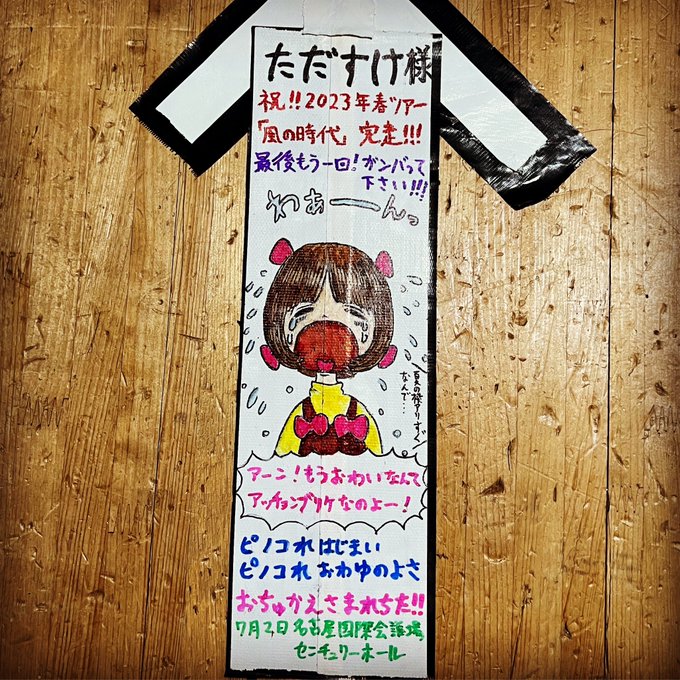 ただすけ様
祝!!2023年春ツアー
「風の時代」完走!!!
最後もう一回!ガンバって
下さい!!!
わぁーーんっ
なんで…
アーン!もうおわいなんて
アッチョンブリケなのよー!
ピノコれはじまい
ピノコれおわゆのよさ
おちゅかえさまれちた!!
7月2日名古屋国際会議場
センチュリーホール